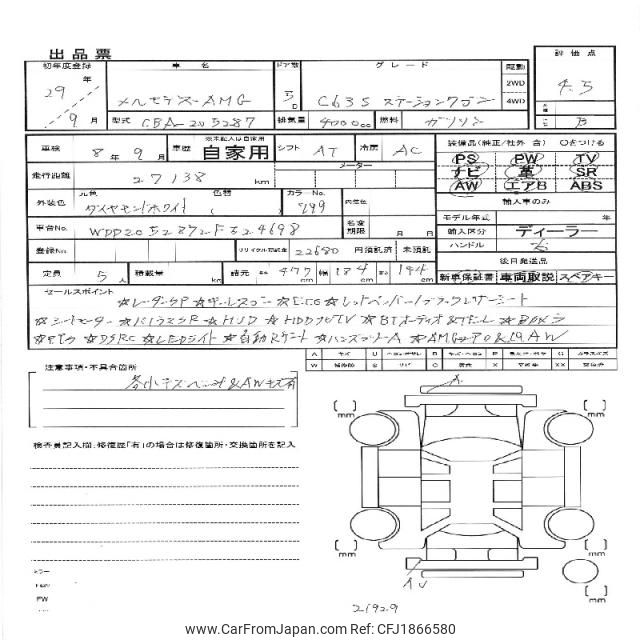 出品票
初年度登録 車名 ドア数 グレード 駆動 評価点
29年 メルセデスAMG 5D C63S ステーションワゴン 2WD 4WD 4.5
9月 型式 CBA-205287 排気量 4000cc 燃料 ガソリン B
車検 8年9月 車歴 ※未記入は自家用 自家用 シフト AT 冷房 AC 装備品(純正/社外 含) ○をつける
PS PW TV
走行距離 27138 km メーター ナビ 革 SR
AW エアB ABS
外装色 元色 ダイヤモンドホワイト 色替 カラーNo. 799 内装色 輸入車のみ
モデル年式 年
車台No. WDD2052872F524698 名変期限 月 日 輸入区分 ディーラー
登録No. リサイクル預託金 22680 円預託済 未預託 ハンドル 右
後日発送品
定員 5人 積載量 kg 諸元 長さ 477cm 幅 184cm 高さ 144cm 新車保証書 車両取説 スペアキー
セールスポイント ☆レーダーSP ☆キーレスゴー ☆ETC ☆レッドペッパー/ブラックレザーシート
☆シートヒーター ☆パノラマSR ☆HUD ☆HDDナビTV ☆BTオーディオ&TEL ☆Bカメラ
☆DSRC ☆LEDライト ☆自動Rゲート ☆ハンズフリーA ☆AMG エアロ&19AW
注意事項・不具合箇所
小キズ 凹 & AWキズ有
検査員記入欄、修復歴「有」の場合は修復箇所・交換箇所を記入
A
mm mm
mm mm
mm mm
AU
ミラー
PW
21929
www.CarFromJapan.com - Ref No: CFJ1866580